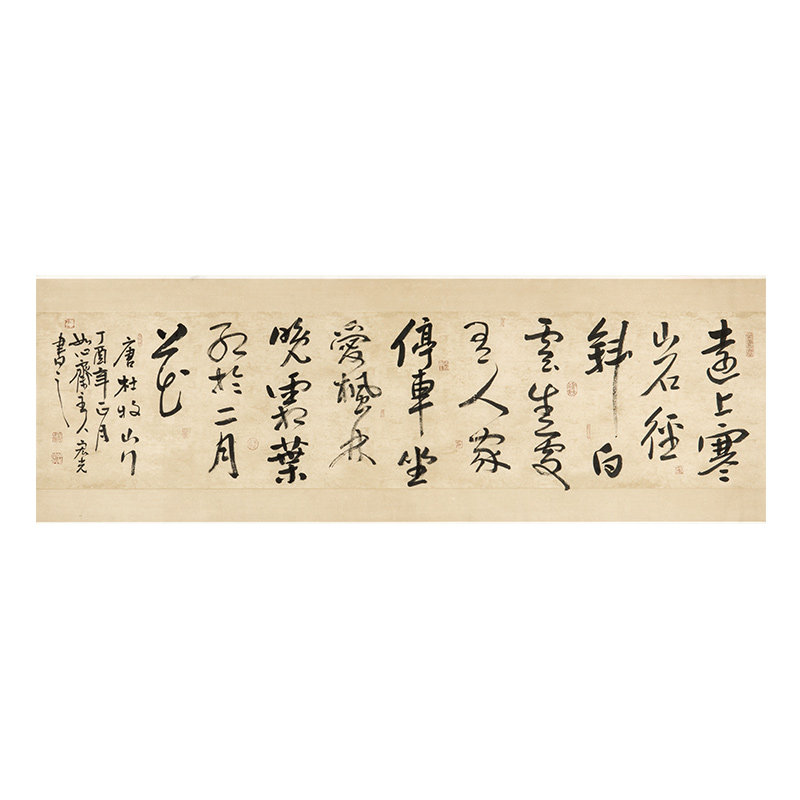 遠上寒
山石徑
斜白
雲生處
有人家
停車坐
愛楓林
晚霜葉
紅於二月
花
唐杜牧山行
丁酉年正月
如心齋主人宏光
書之